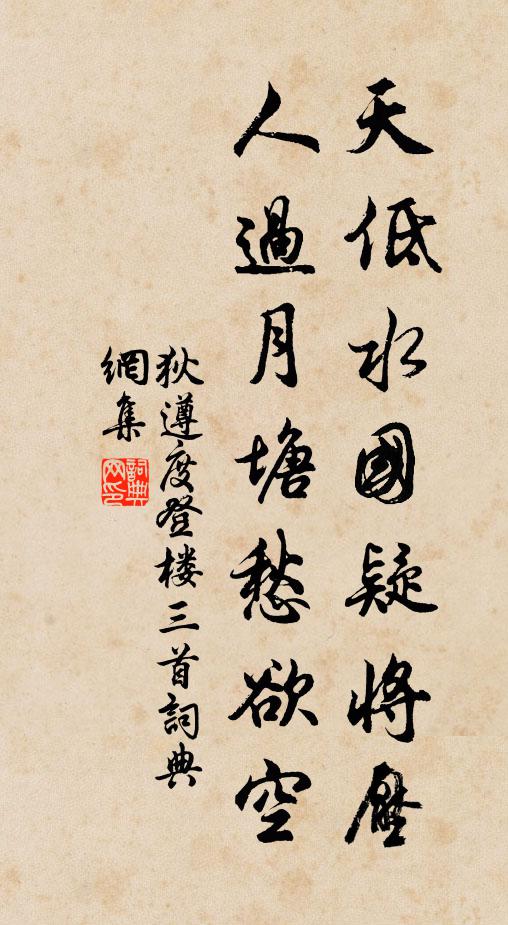 天低水國疑將壓
人過月塘愁欲空
狄遵度登楼三首詞典
網集
詞典網印